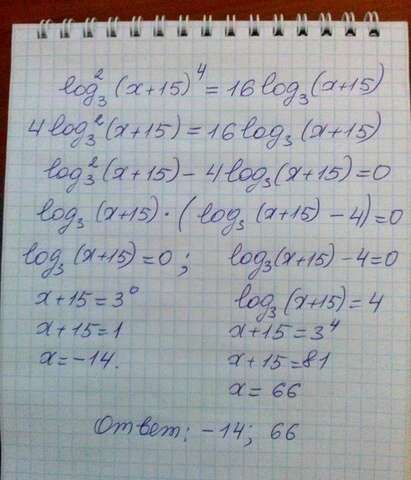 log₃²(x+15)⁴ = 16log₃(x+15)
4log₃²(x+15) = 16log₃(x+15)
log₃²(x+15) - 4log₃(x+15) = 0
log₃(x+15)·(log₃(x+15) - 4) = 0
log₃(x+15) = 0; log₃(x+15) - 4 = 0
x+15 = 3⁰ log₃(x+15) = 4
x+15 = 1 x+15 = 3⁴
x = -14. x+15 = 81
x = 66
Ответ: -14; 66